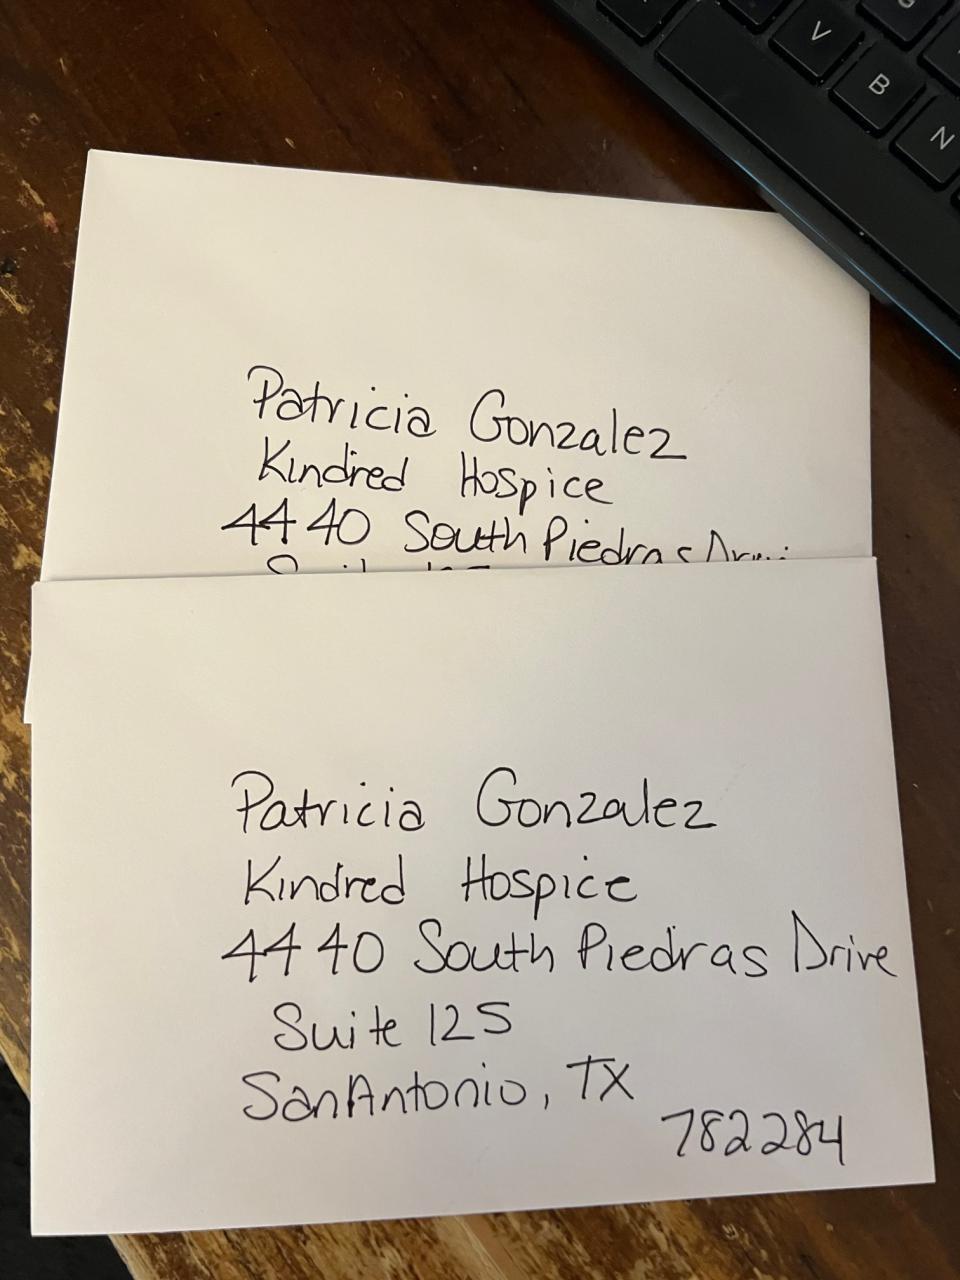 V
B
N
Patricia Gonzalez
Kindred Hospice
4440 South Piedras
Patricia Gonzalez
Kindred Hospice
4440 South Piedras Drive
Suite 125
San Antonio, TX
782284